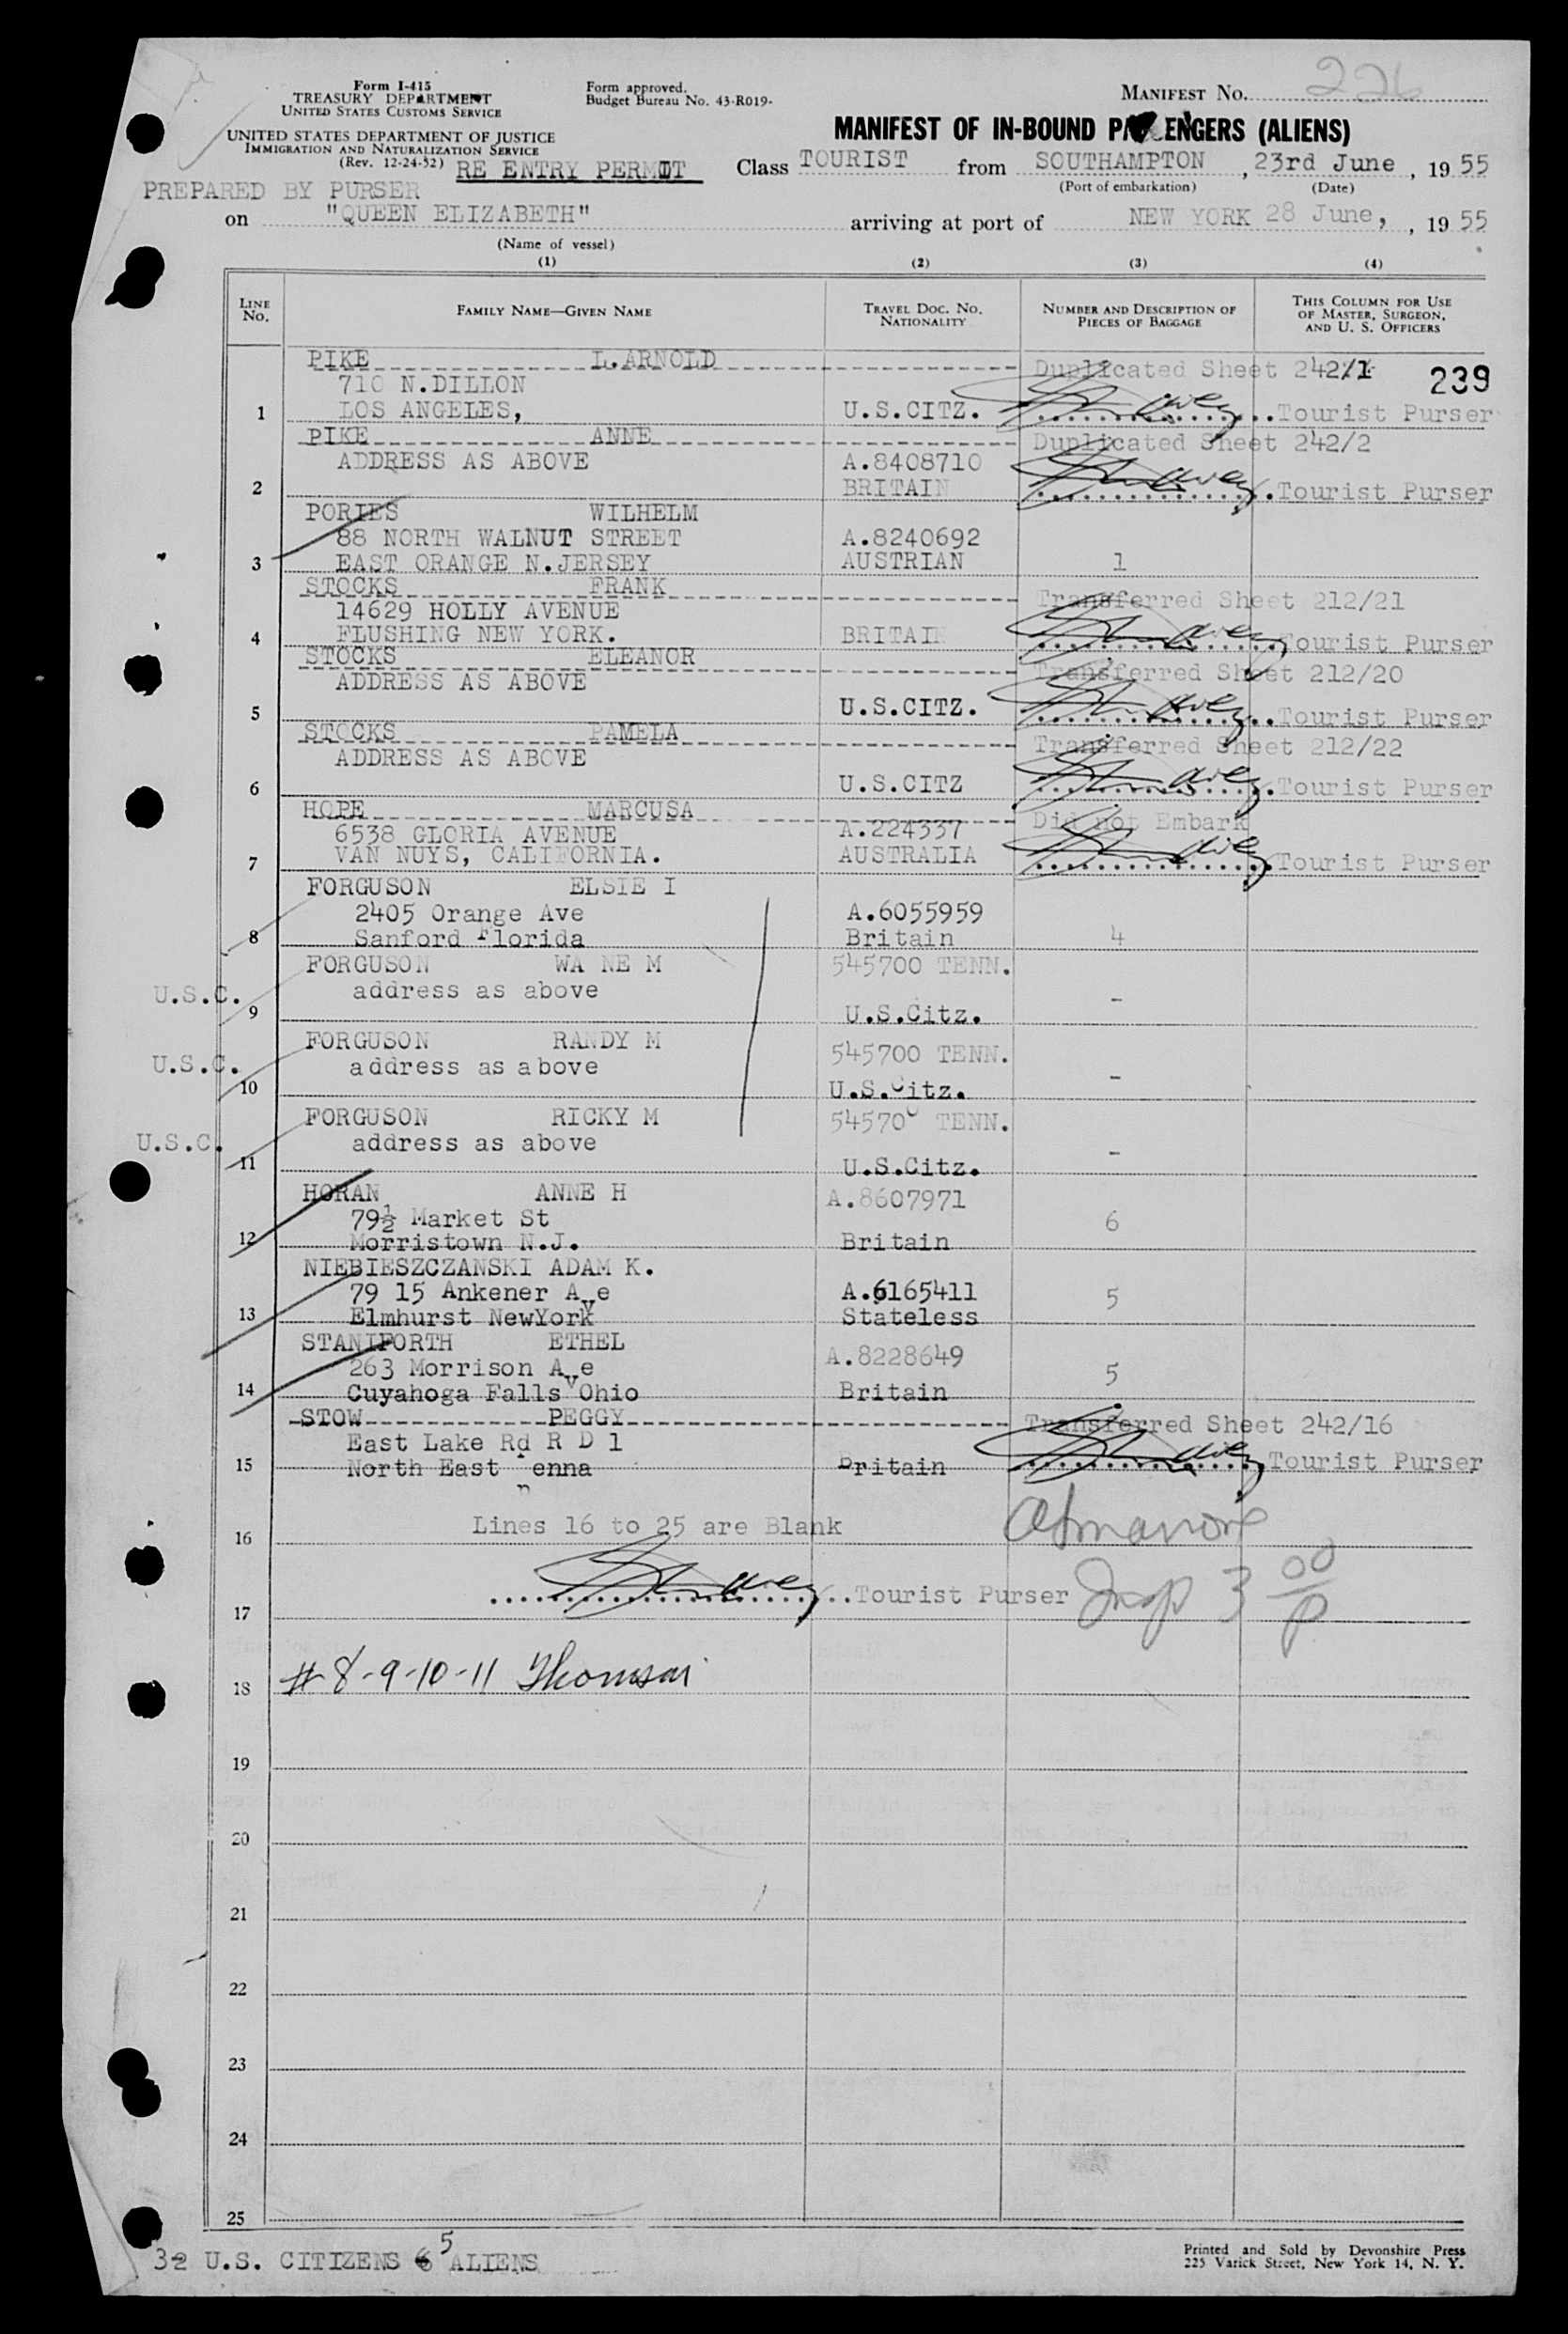 Form I-415
TREASURY DEPARTMENT
UNITED STATES CUSTOMS SERVICE
UNITED STATES DEPARTMENT OF JUSTICE
IMMIGRATION AND NATURALIZATION SERVICE
(Rev. 12-24-52)
Form approved.
Budget Bureau No. 43-R019-
MANIFEST NO. 226
MANIFEST OF IN-BOUND PA ENGERS (ALIENS)
RE ENTRY PERMIT Class TOURIST from SOUTHAMPTON, 23rd June, 19 55
(Port of embarkation) (Date)
PREPARED BY PURSER
on "QUEEN ELIZABETH" arriving at port of NEW YORK 28 June, , 19 55
(Name of vessel)
(1) (2) (3) (4)
LINE NO. FAMILY NAME—GIVEN NAME TRAVEL DOC. NO. NATIONALITY NUMBER AND DESCRIPTION OF PIECES OF BAGGAGE THIS COLUMN FOR USE OF MASTER, SURGEON, AND U. S. OFFICERS
PIKE L.ARNOLD Duplicated Sheet 242/1 239
710 N.DILLON
1 LOS ANGELES, U.S.CITZ. Tourist Purser
PIKE ANNE Duplicated Sheet 242/2
ADDRESS AS ABOVE A.8408710
2 BRITAIN Tourist Purser
PORIES WILHELM
88 NORTH WALNUT STREET A.8240692
3 EAST ORANGE N.JERSEY AUSTRIAN 1
STOCKS FRANK Transferred Sheet 212/21
14629 HOLLY AVENUE
4 FLUSHING NEW YORK. BRITAIN Tourist Purser
STOCKS ELEANOR Transferred Sheet 212/20
ADDRESS AS ABOVE
5 U.S.CITZ. Tourist Purser
STOCKS PAMELA Transferred Sheet 212/22
ADDRESS AS ABOVE
6 U.S.CITZ Tourist Purser
HOPE MARCUSA Did not Embark
6538 GLORIA AVENUE A.224337
7 VAN NUYS, CALIFORNIA. AUSTRALIA Tourist Purser
FORGUSON ELSIE I
2405 Orange Ave A.6055959
8 Sanford Florida Britain 4
FORGUSON WA NE M 545700 TENN.
U.S.C. address as above -
9 U.S.Citz.
FORGUSON RANDY M 545700 TENN.
U.S.C. address as above -
10 U.S.Citz.
FORGUSON RICKY M 545700 TENN.
U.S.C. address as above -
11 U.S.Citz.
HORAN ANNE H A.8607971
79½ Market St 6
12 Morristown N.J. Britain
NIEBIESZCZANSKI ADAM K.
79 15 Ankener Ave A.6165411 5
13 Elmhurst NewYork Stateless
STANIFORTH ETHEL A.8228649
263 Morrison Ave 5
14 Cuyahoga Falls Ohio Britain
STOW PEGGY Transferred Sheet 242/16
East Lake Rd R D 1
15 North East Penna Britain Tourist Purser
Lines 16 to 25 are Blank
16
Tourist Purser Insp 3 00/P
17
18 # 8-9-10-11 Thomson
19
20
21
22
23
24
25
32 U.S. CITIZENS 6 5 ALIENS
Printed and Sold by Devonshire Press
225 Varick Street, New York 14, N. Y.